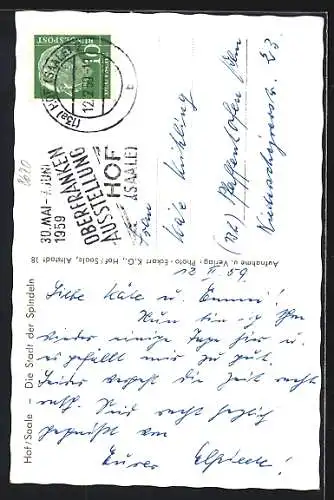 DEUTSCHE BUNDESPOST
10
(13a) HOF (SAALE)
12.2.59
30. MAI - 7. JUNI
1959
OBERFRANKEN
AUSSTELLUNG
HOF
(SAALE)
8620
Frau
Käte
(13b) Pfaffenhofen Ilm
23
Hof/Saale - Die Stadt der Spindeln
Aufnahme u. Verlag: Photo-Eckart K.G., Hof/Saale, Altstadt 18
12 II 59
Liebe Käte u. Emmi!
Nun bin ich schon
wieder einige Tage hier u.
es gefällt mir so gut.
Leider vergeht die Zeit recht
rasch. Seid recht herzlich
gegrüßt von
Eurer